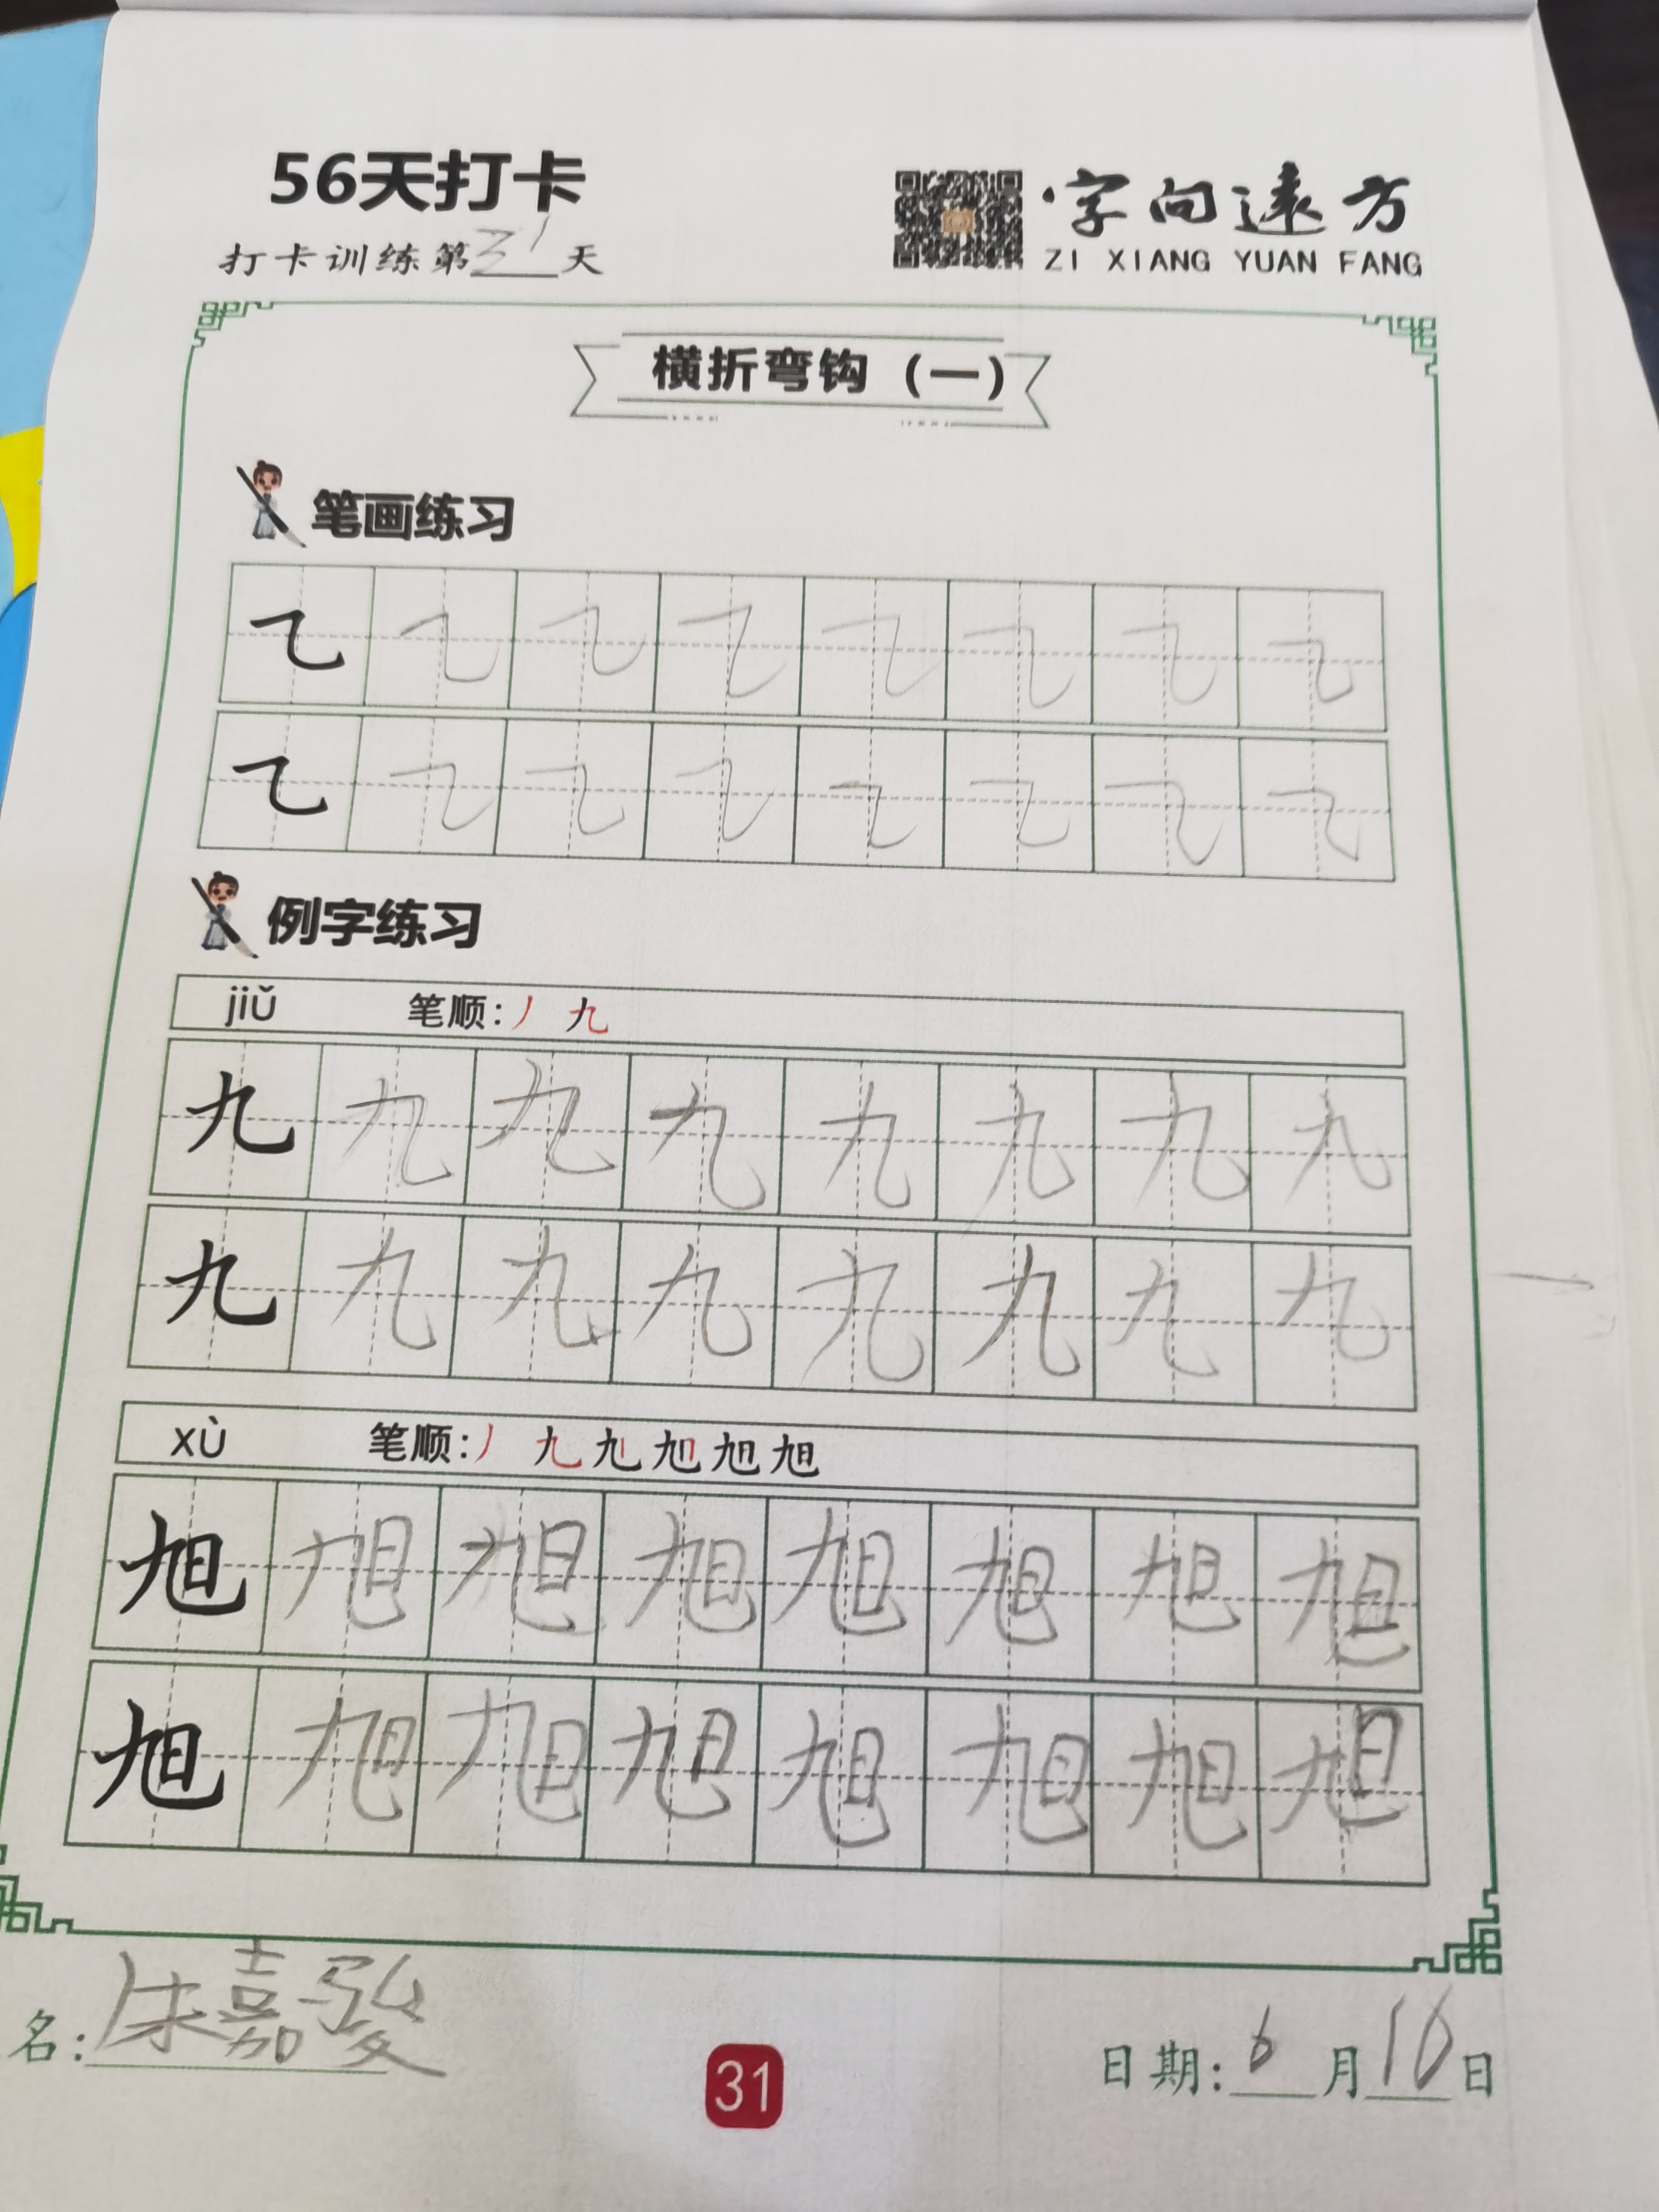 56天打卡
打卡训练第31天
字向远方
ZI XIANG YUAN FANG
横折弯钩（一）
笔画练习
乙 乙 乙 乙 乙 乙 乙 乙
乙 乙 乙 乙 乙 乙 乙 乙
例字练习
jiǔ 笔顺：丿 九
九 九 九 九 九 九 九 九
九 九 九 九 九 九 九 九
xù 笔顺：丿 九 旭 旭 旭
旭 旭 旭 旭 旭 旭 旭 旭
旭 旭 旭 旭 旭 旭 旭 旭
名：嘉骏
31
日期：6月16日